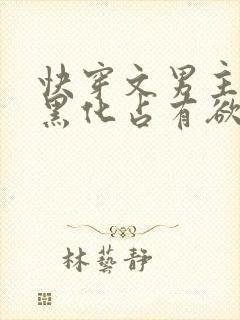 快穿文男主
黑化占有欲
林藝靜